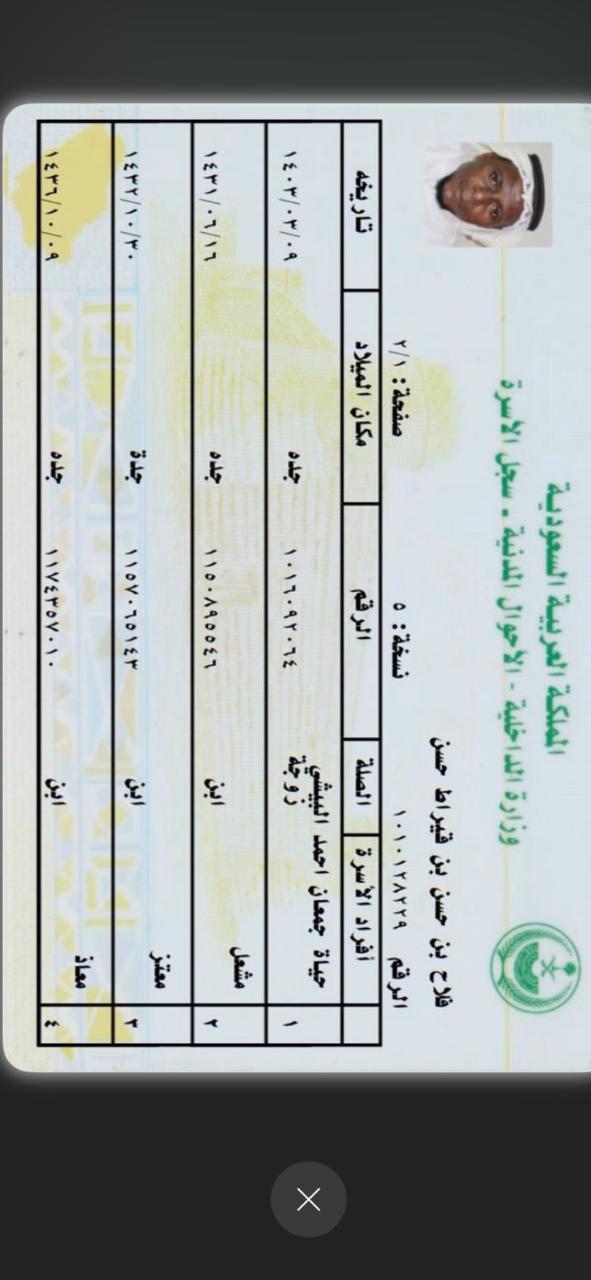 المملكة العربية السعودية
وزارة الداخلية - الأحوال المدنية - سجل الأسرة
فلاح بن حسن بن قيراط حسن
الرقم ١٠١٠١٢٨٢٢٩ نسخة: ٥ صفحة: ٢/١
أفراد الأسرة الصلة الرقم مكان الميلاد تاريخه
١ حياة جمعان احمد البيشي زوجة ١٠١٦٠٩٢٠٦٤ جده ١٤٠٣/٠٣/٠٩
٢ مشعل ابن ١١٥٠٨٩٥٥٤٦ جده ١٤٣١/٠٦/١٦
٣ معتز ابن ١١٥٧٠٦٥١٤٣ جدة ١٤٣٢/١٠/٣٠
٤ معاذ ابن ١١٧٤٣٥٧٠١٠ جده ١٤٣٦/١٠/٠٩